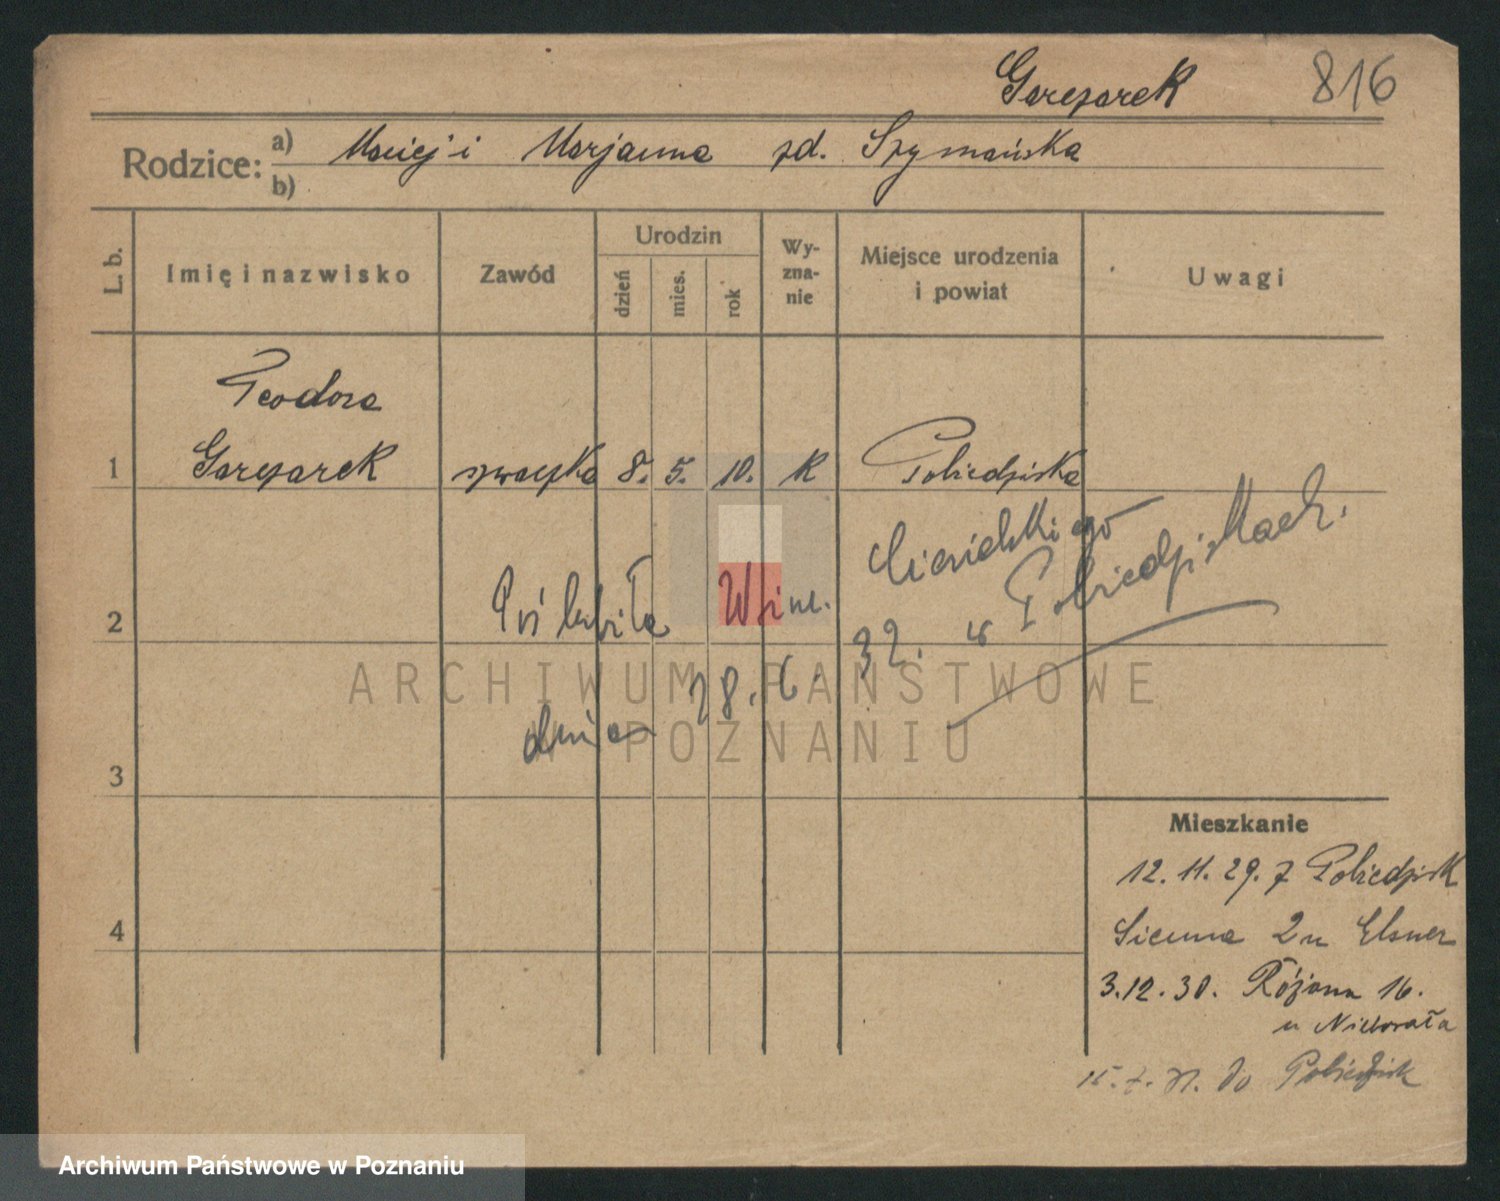 Garczarek 816
Rodzice: a) Maciej i Marjanna zd. Szymańska
b)
L. b. Imię i nazwisko Zawód Urodzin dzień mies. rok Wy-zna-nie Miejsce urodzenia i powiat Uwagi
Teodora
1 Garczarek szwaczka 8. 5. 10. k Pobiedziska
2 Poślubiła Wsinc. Ciesielskiego
dnia 28. 6. 32. w Pobiedziskach.
ARCHIWUM PAŃSTWOWE
W POZNANIU
3
4
Mieszkanie
12. 11. 29. z Pobiedzisk
Sienna 2 u Elsner
3. 12. 30. Różana 16.
u Niedorała
15. 7. 31. do Pobiedzisk
Archiwum Państwowe w Poznaniu